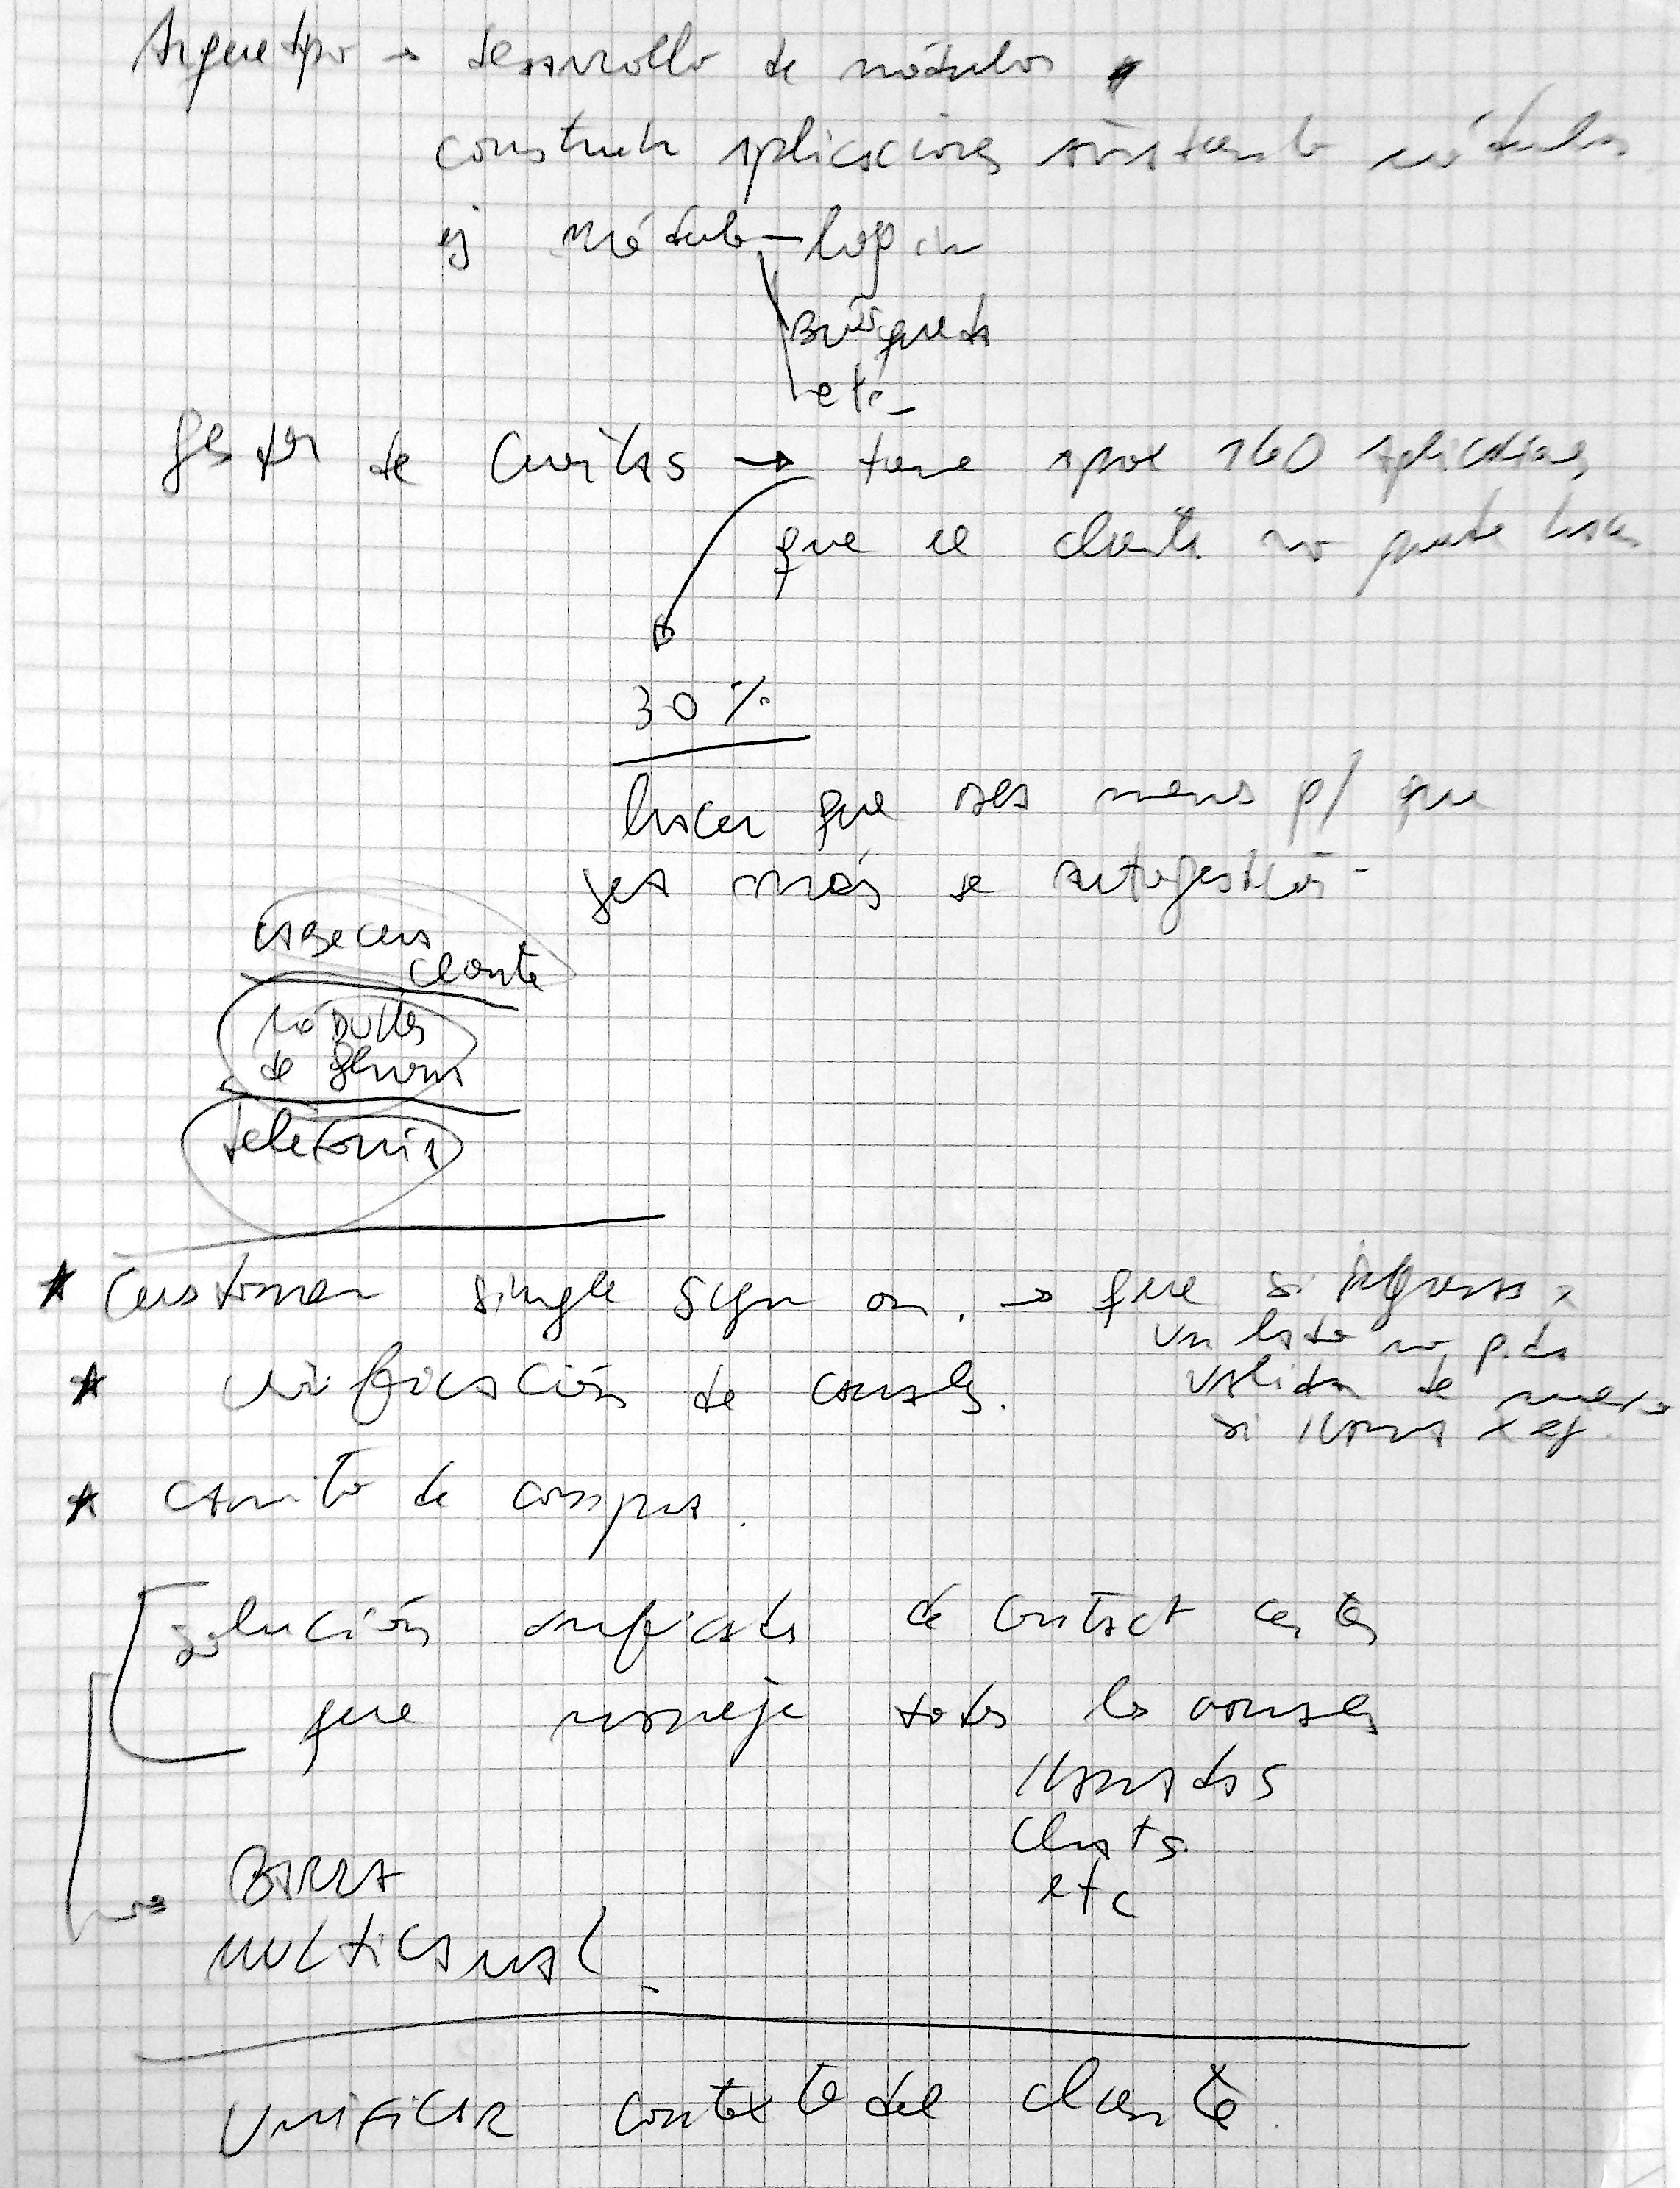 Arquetipo → desarrollo de módulos
construir aplicaciones módulos
ej módulo — login
Búsqueda
etc_
Gestor de Cuentas → tiene aprox 160 aplicaciones
que el cliente no puede usar
30 %
hacer que sea menos p/ que
sea más se autogestión -
cabecera
cliente
módulos
de
telefonía
★ Customer single sign on. → que si ingresa x
un lado no pida
★ Unificación de canales. validar de nuevo
si llama x ej.
★ carrito de compra.
solución unificada de contact center
que maneje todos los canales
llamadas
chats.
etc
BARRA
multicanal
Unificar contexto del cliente.